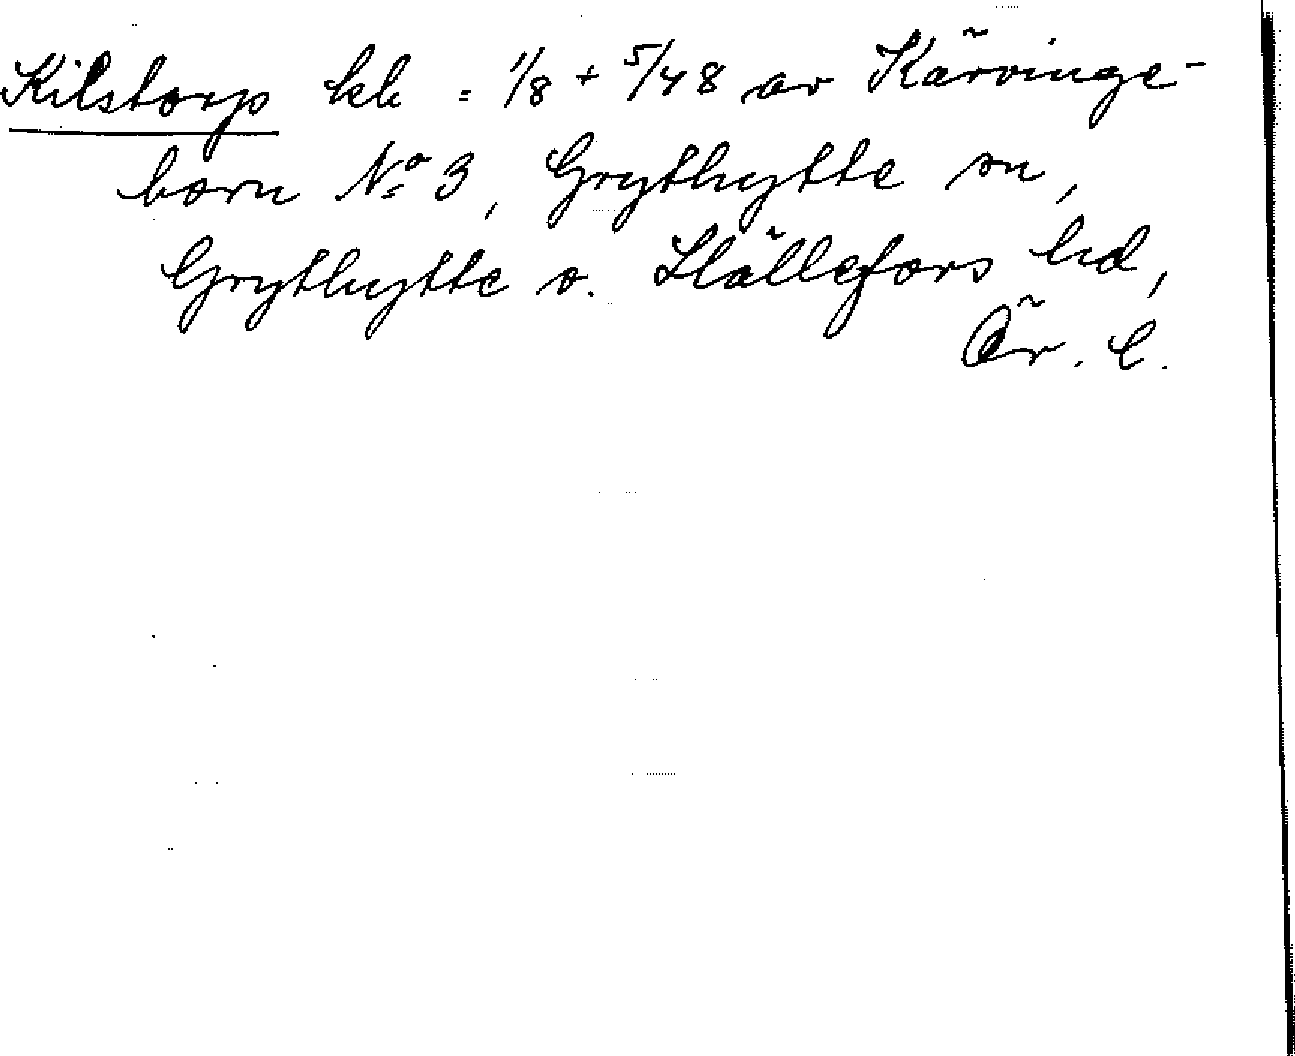 Kilstorp hh = 1/8 + 5/48 av Kärvinge-
born No 3, Grythytte sn,
Grythytte o. Hällefors hd,
Ör. l.